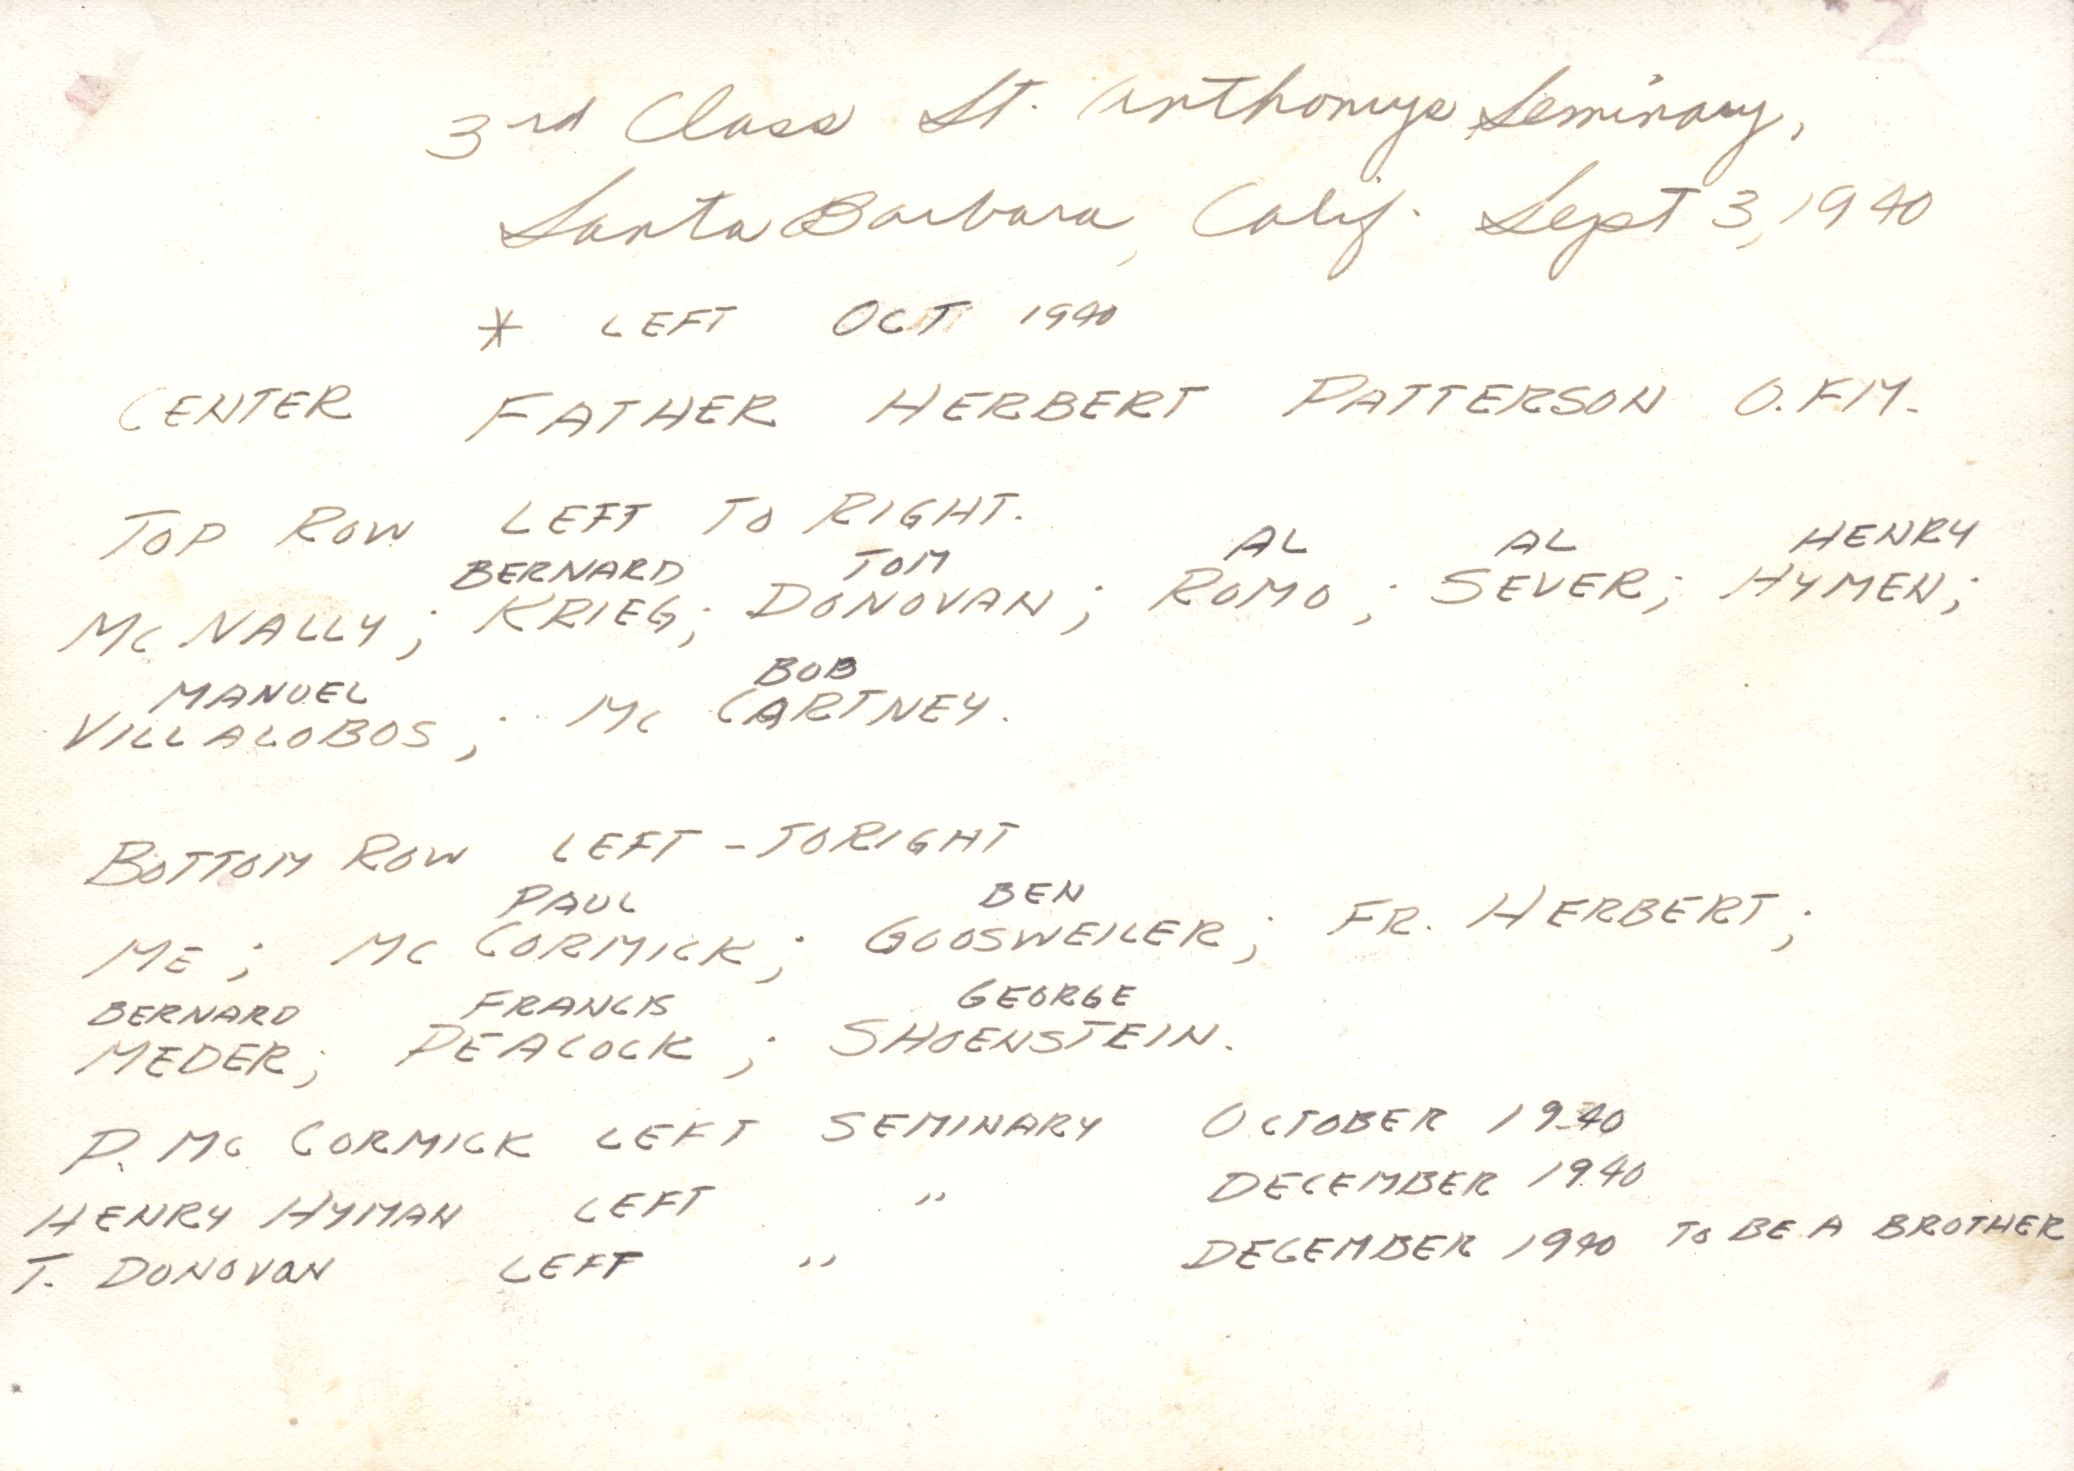 3rd Class St. Anthonys Seminary,
Santa Barbara, Calif. Sept 3, 1940
* LEFT OCT 1940
CENTER FATHER HERBERT PATTERSON O.F.M.
TOP ROW LEFT TO RIGHT.
BERNARD TOM AL AL HENRY
MC NALLY; KRIEG; DONOVAN; ROMO; SEVER; HYMEN;
MANUEL BOB
VILLALOBOS; MC CARTNEY.
BOTTOM ROW LEFT - TO RIGHT
PAUL BEN
ME; MC CORMICK; GOOSWEILER; FR. HERBERT;
BERNARD FRANCIS GEORGE
MEDER; PEACOCK; SHOENSTEIN.
P. MC CORMICK LEFT SEMINARY OCTOBER 1940
HENRY HYMAN LEFT " DECEMBER 1940
T. DONOVAN LEFT " DECEMBER 1940 TO BE A BROTHER